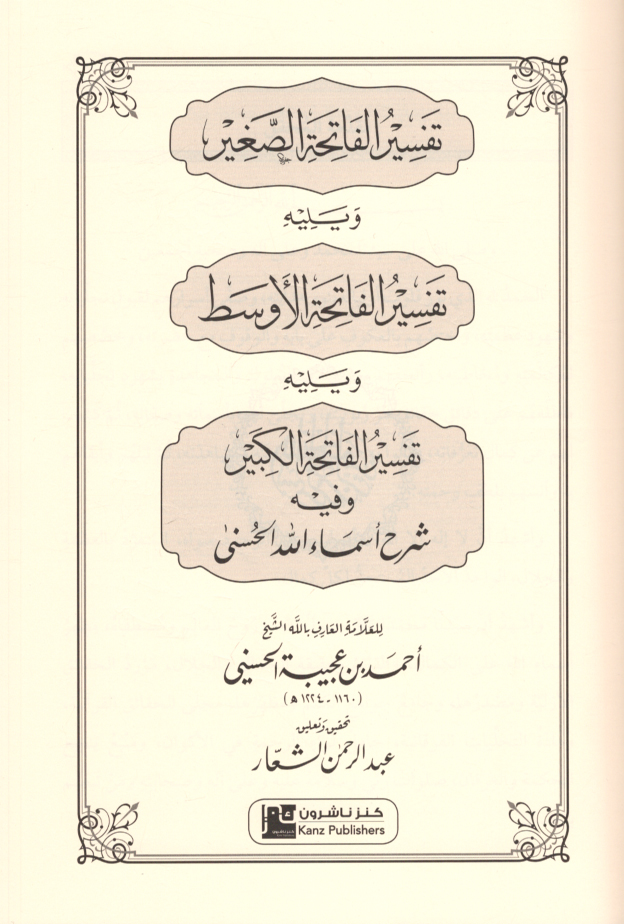 تَفْسِيْرُ الفَاتِحَةِ الصَّغِيْر
وَيَلِيْهِ
تَفْسِيْرُ الفَاتِحَةِ الأَوْسَط
وَيَلِيْهِ
تَفْسِيْرُ الفَاتِحَةِ الكَبِيْر
وَفِيْه
شَرْح أَسْمَاء الله الحُسْنَى
لِلعَلَّامَةِ العَارِفِ بِاللَّهِ الشَّيْخِ
أَحْمَد بن عَجِيْبَة الحَسَنِي
(١١٦٠ - ١٢٢٤ هـ)
تحقيق وتعليق
عبد الرحمن الشعَّار
كنز ناشرون
Kanz Publishers